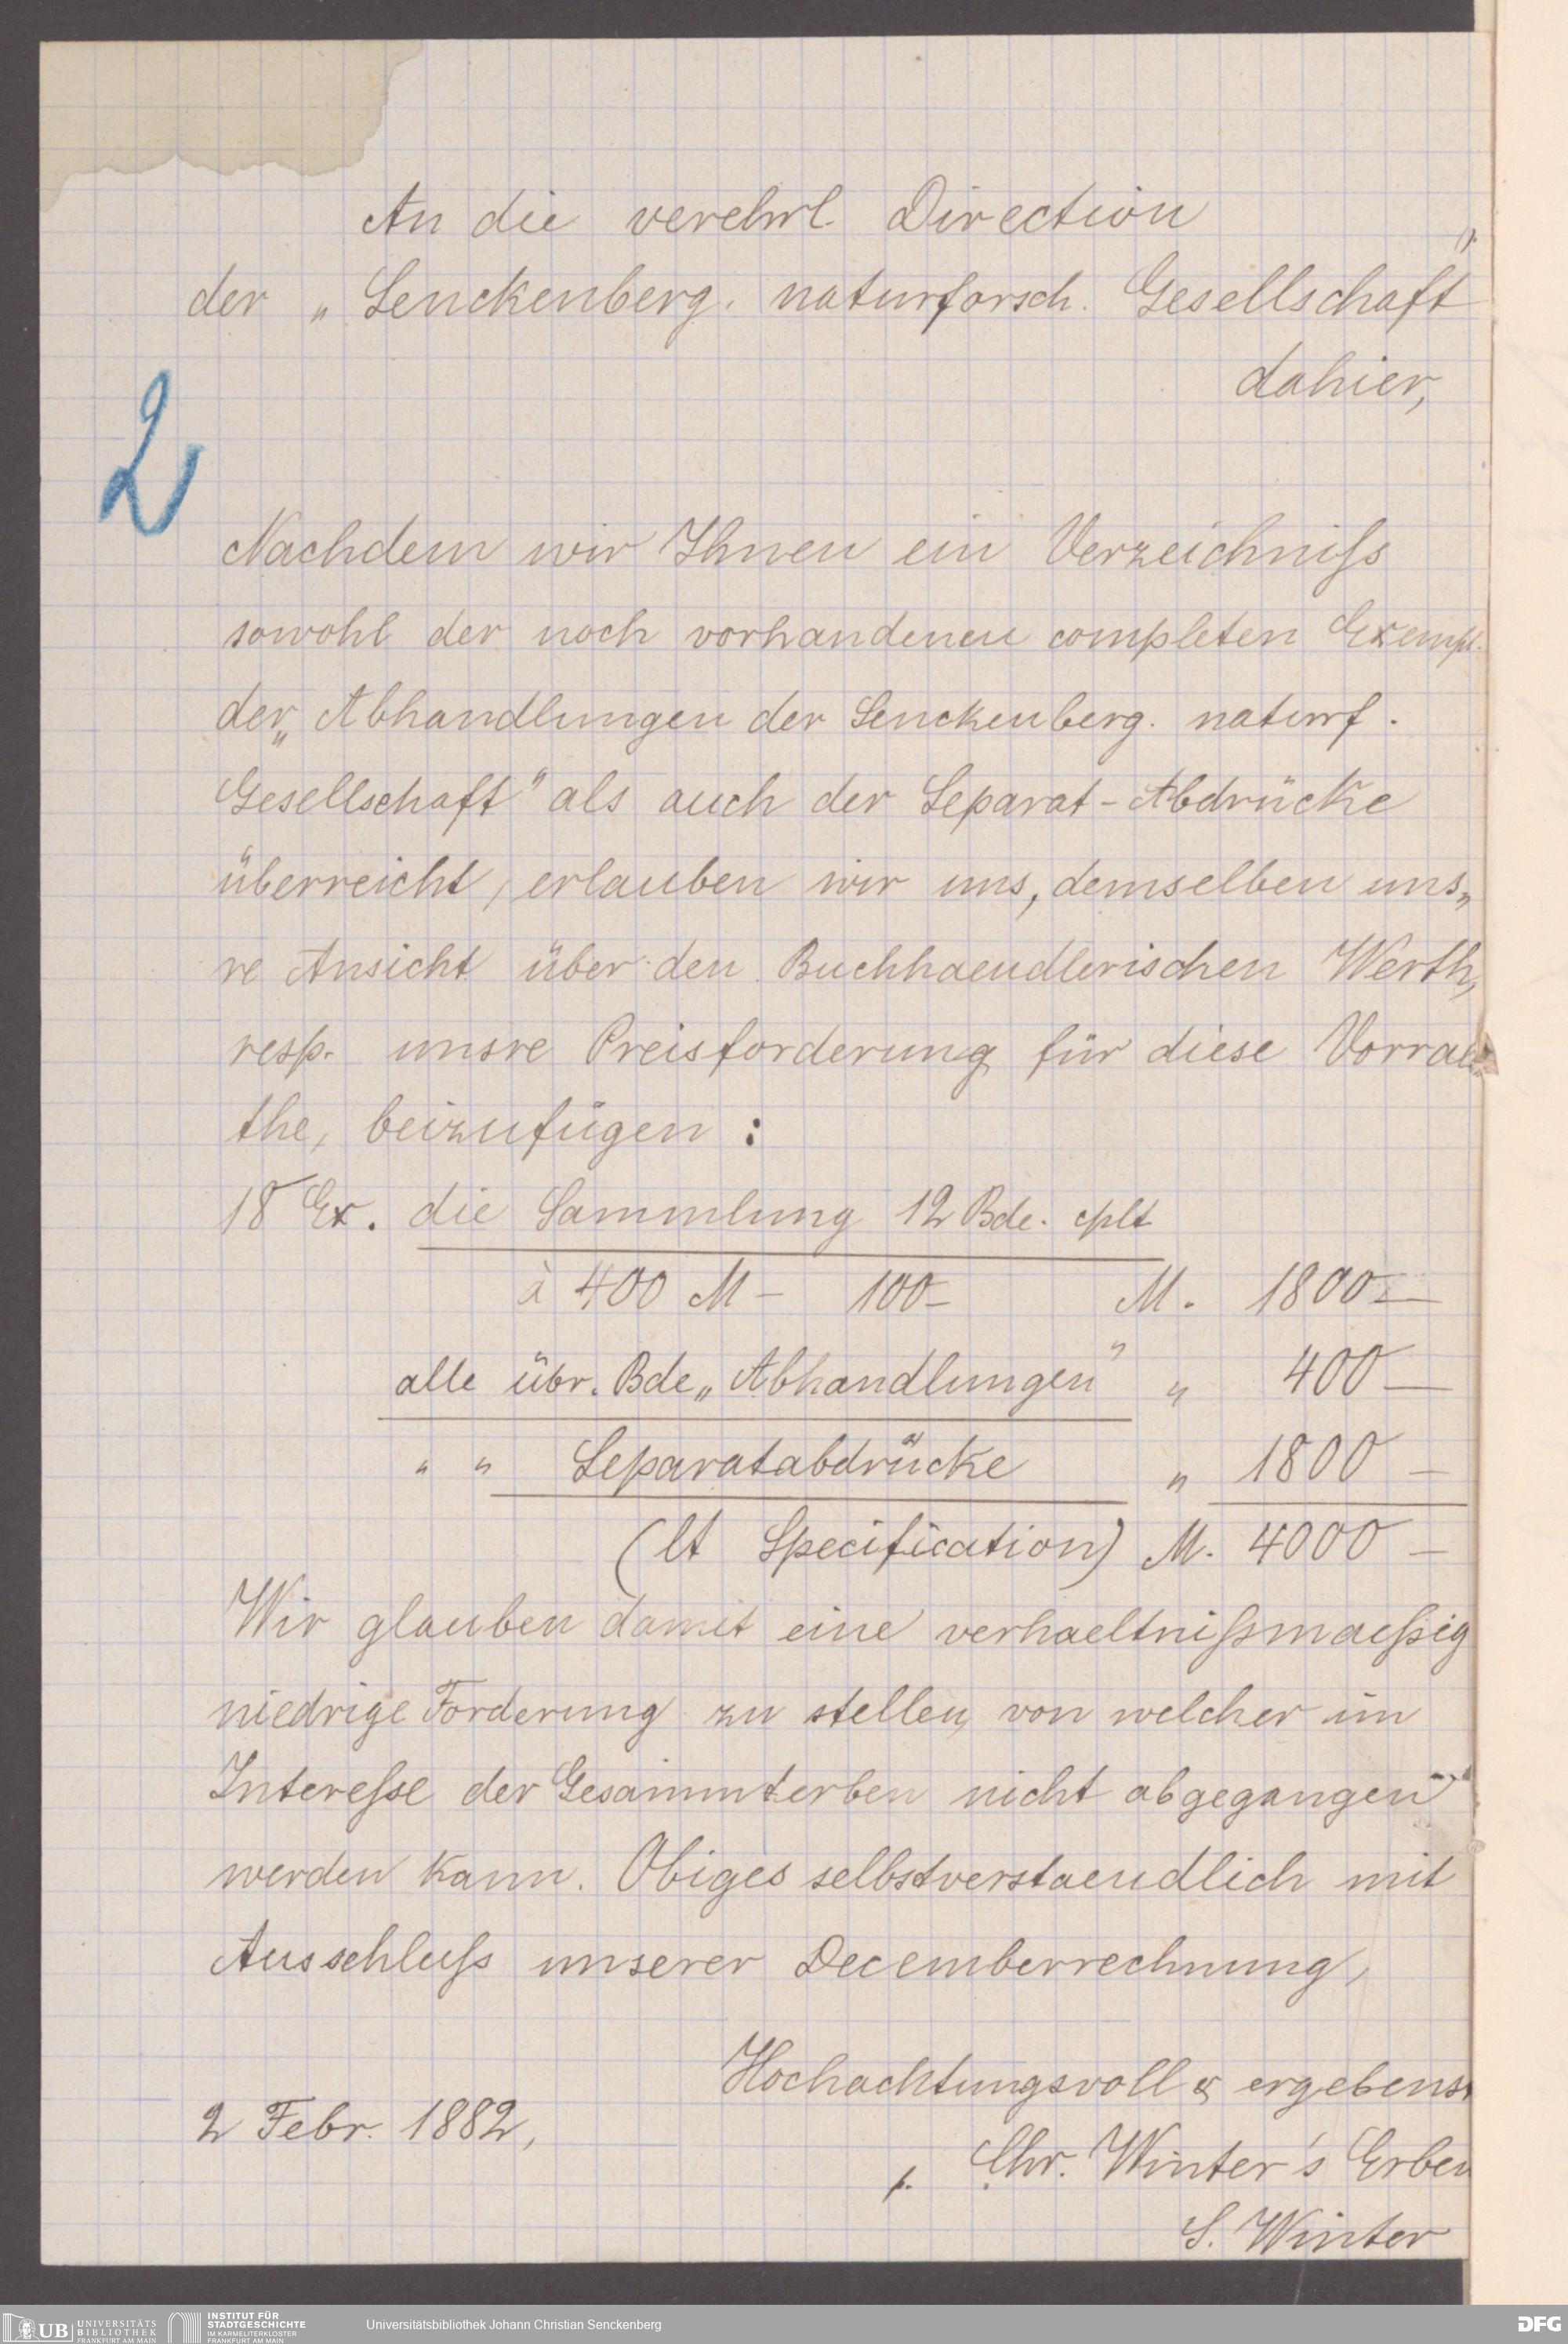 An die verehrl Direction
der „Senckenberg. naturforsch. Gesellschaft“
dahier,
2
Nachdem wir Ihnen ein Verzeichniſs
sowohl der noch vorhandenen completen Exempl.
der „Abhandlungen der Senckenberg. naturf.
Gesellschaft“ als auch der Separat-Abdrücke
überreicht, erlauben wir uns, demselben uns„
re Ansicht über den Buchhaendlerischen Werth,
resp. unsre Preisforderung für diese Vorrae„
the, beizufügen :
18 Ex. die Sammlung 12 Bde. cplt
à 400 M – 100– M. 1800 —
alle übr. Bde „Abhandlungen“ „ 400 —
„ „ Separatabdrücke „ 1800 —
(lt Specification) M. 4000 —
Wir glauben damit eine verhaeltniſsmaeſsig
niedrige Forderung zu stellen, von welcher im
Intereſse der Gesammterben nicht abgegangen
werden kann. Obiges selbstverstaendlich mit
Ausschluſs unserer Decemberrechnung,
Hochachtungsvoll & ergebenst
2 Febr. 1882,
p. Chr. Winter's Erben
S. Winter
UB UNIVERSITÄTS BIBLIOTHEK FRANKFURT AM MAIN
INSTITUT FÜR STADTGESCHICHTE IM KARMELITERKLOSTER FRANKFURT AM MAIN
Universitätsbibliothek Johann Christian Senckenberg
DFG